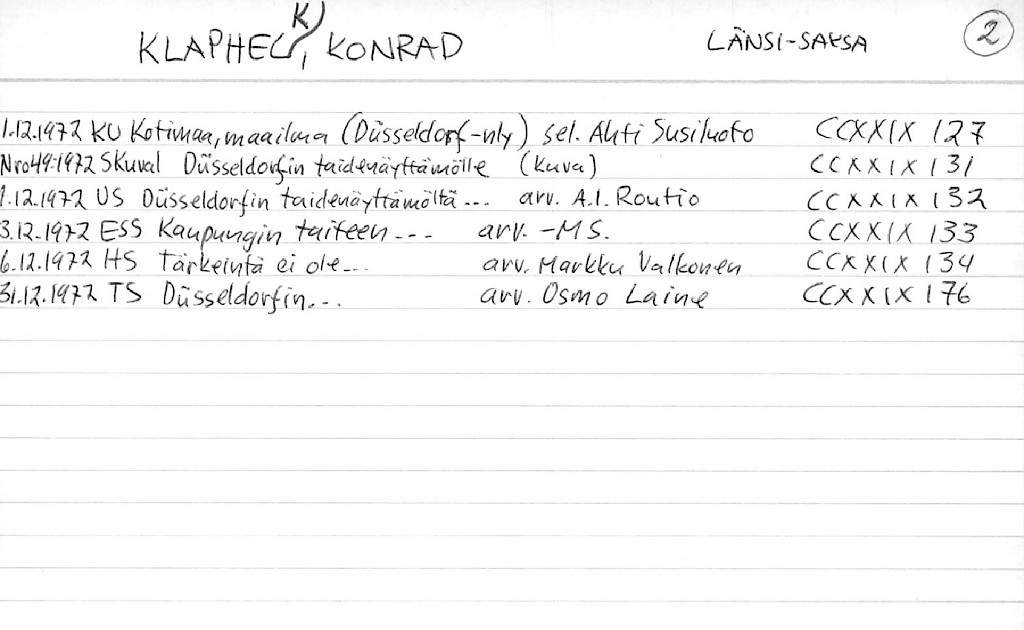 KLAPHECK, KONRAD LÄNSI-SAKSA 2
1.12.1972 KU Kotimaa, maailma (Düsseldorf-nly) sel. Ahti Susiluoto CCXXIX 127
Nro 49-1972 SKuval Düsseldorfin taidenäyttämölle (kuva) CCXXIX 131
1.12.1972 US Düsseldorfin taidenäyttämöltä... arv. A.I. Routio CCXXIX 132
3.12.1972 ESS Kaupungin taiteen... arv. -MS. CCXXIX 133
6.12.1972 HS Tärkeintä ei ole... arv. Markku Valkonen CCXXIX 134
31.12.1972 TS Düsseldorfin... arv. Osmo Laine CCXXIX 176